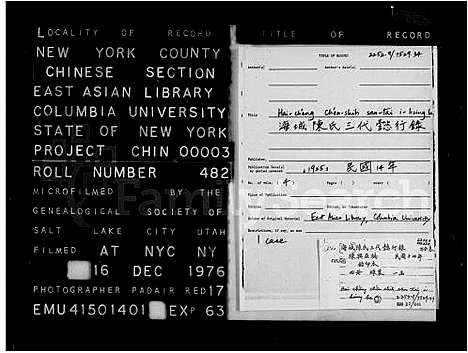 LOCALITY OF RECORD
NEW YORK COUNTY
CHINESE SECTION
EAST ASIAN LIBRARY
COLUMBIA UNIVERSITY
STATE OF NEW YORK
PROJECT CHIN 00003
ROLL NUMBER 482
MICROFILMED BY THE
GENEALOGICAL SOCIETY OF
SALT LAKE CITY UTAH
FILMED AT NYC NY
16 DEC 1976
PHOTOGRAPHER PADAIR RED 17
EMU41501401 EXP 63
TITLE OF RECORD
TITLE OF RECORD 2252.9/7529.34
Author(s) Author's date(s)
Title
Hai-cheng Chen-shih san-tai i-hsing lu
海城陳氏三代懿行錄
Publisher
1925: 民國14年
No. of vols. (4)
East Asian Library, Columbia University
1 case
海城陳氏三代懿行錄
陳興亞編 民國十四年
四冊
Hai chêng chên shih san tai i
hsing lu
2252.9/7529.34